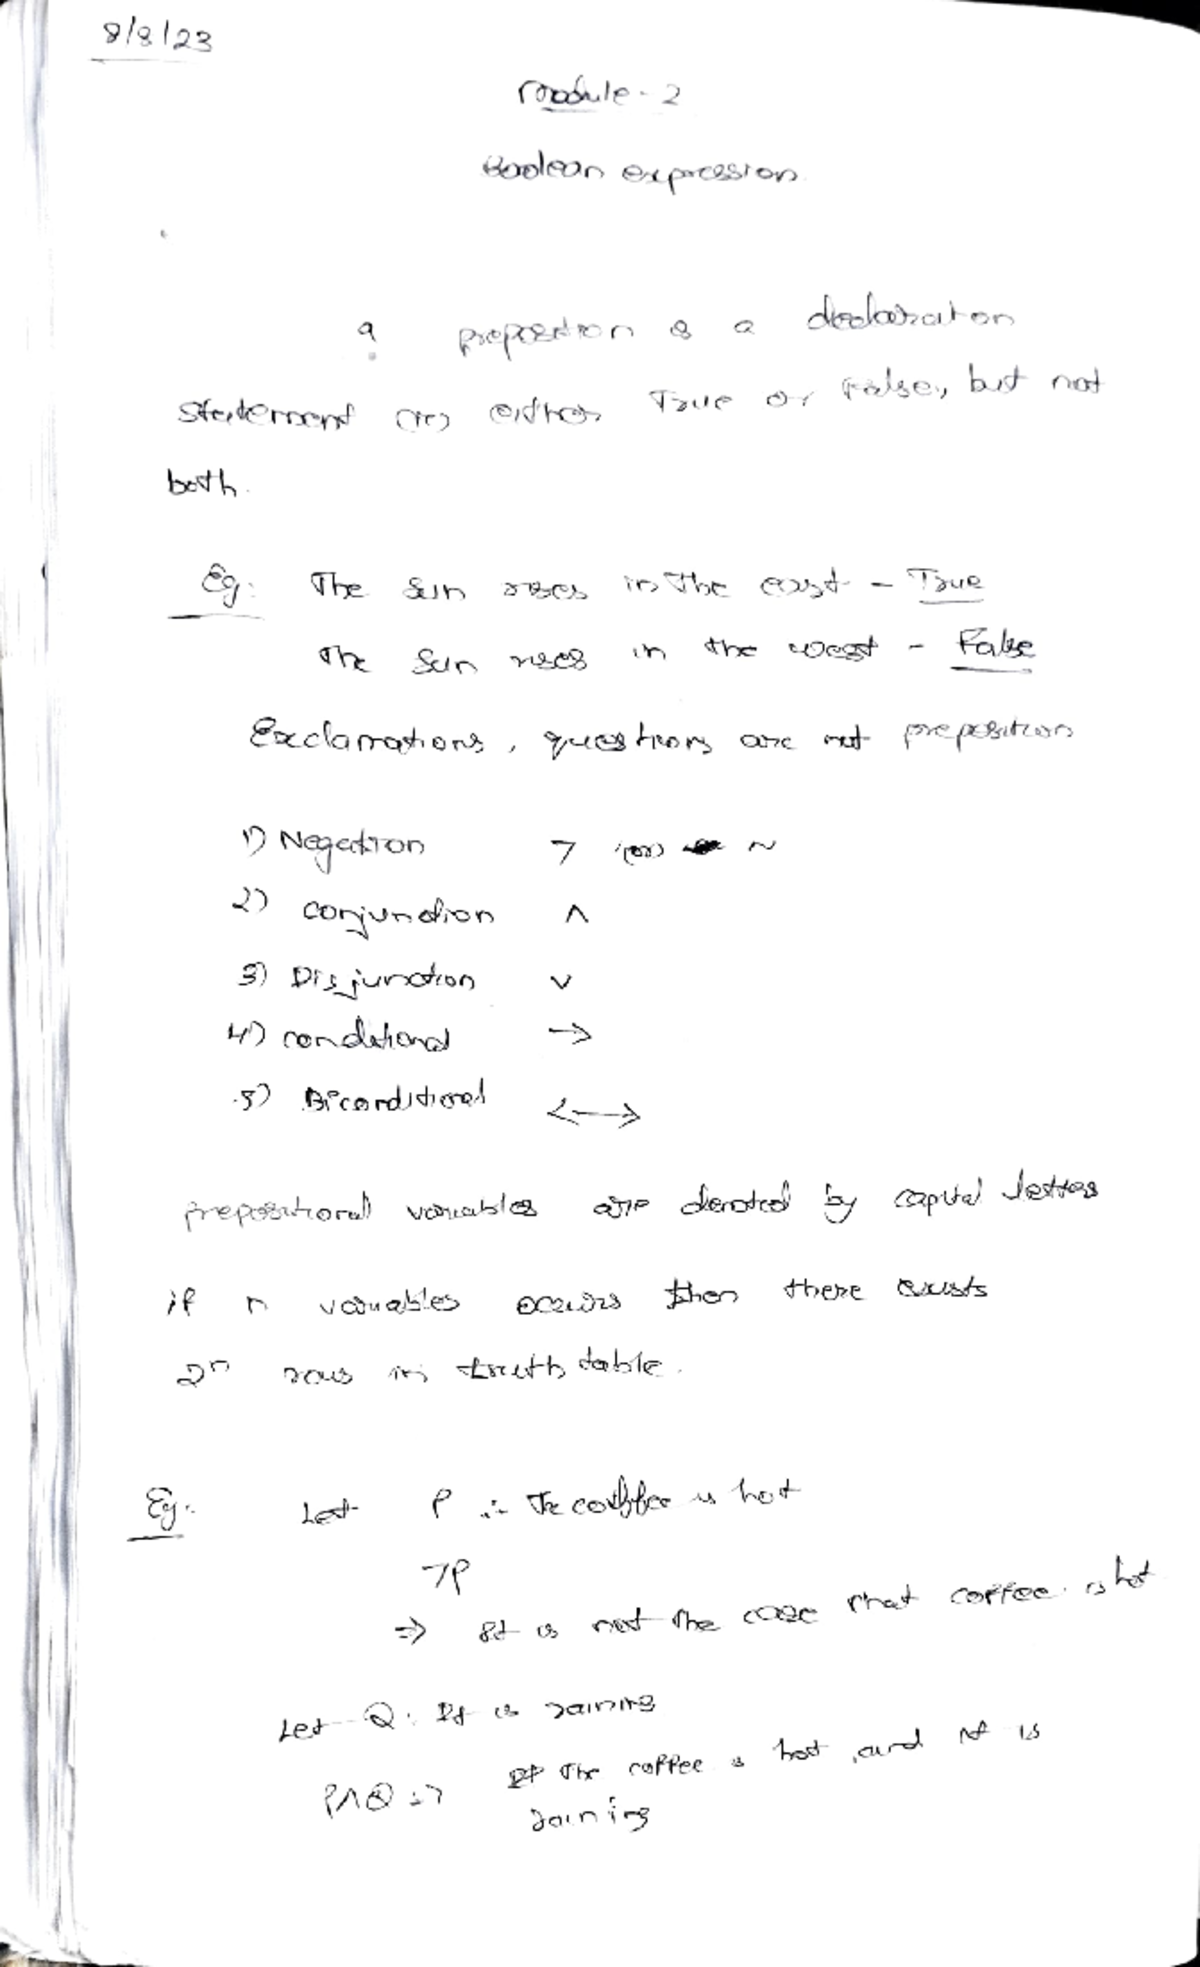 8/8/23
Module - 2
Boolean expression.
a preposition is a declaration
statement (in) either True or False, but not
both.
Eg: The Sun rises in The east - True
The Sun rises in the west - False
Exclamations, questions are not preposition
1) Negation ¬ (or) ~
2) conjunction ∧
3) Disjunction ∨
4) conditional →
5) Biconditional ⟷
prepositional variables are denoted by capital letters
if n variables occurs then there exists
2ⁿ rows in truth table.
Eg: Let P : The coffee is hot
¬P
⇒ It is not the case that coffee is hot
Let Q : It is raining
P∧Q ⇒ The coffee is hot and it is
raining